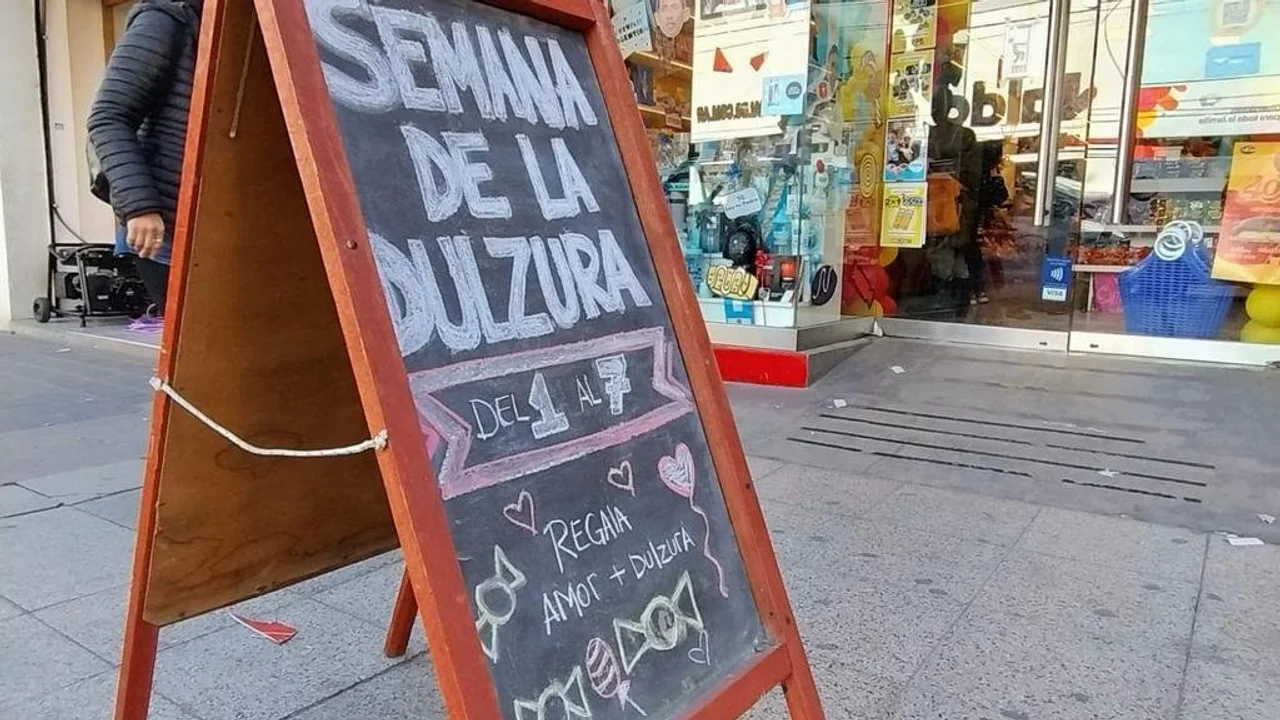 SEMANA
DE LA
DULZURA
DEL 1 AL 7
REGALA
AMOR + DULZURA
VISA